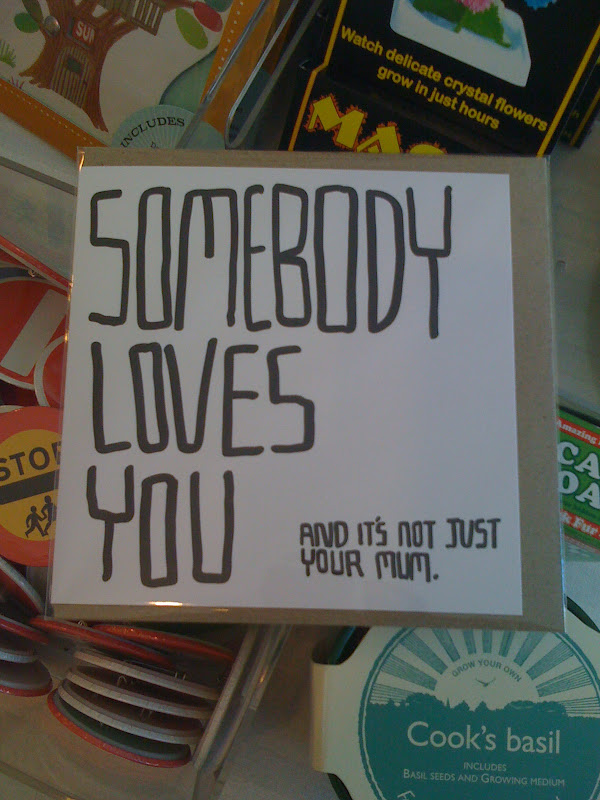 SUN
INCLUDES
Watch delicate crystal flowers
grow in just hours
MAG
SOMEBODY
LOVES
YOU
AND IT'S NOT JUST
YOUR MUM.
STOP
Amazing
CA
OA
GROW YOUR OWN
Cook's basil
INCLUDES
BASIL SEEDS AND GROWING MEDIUM